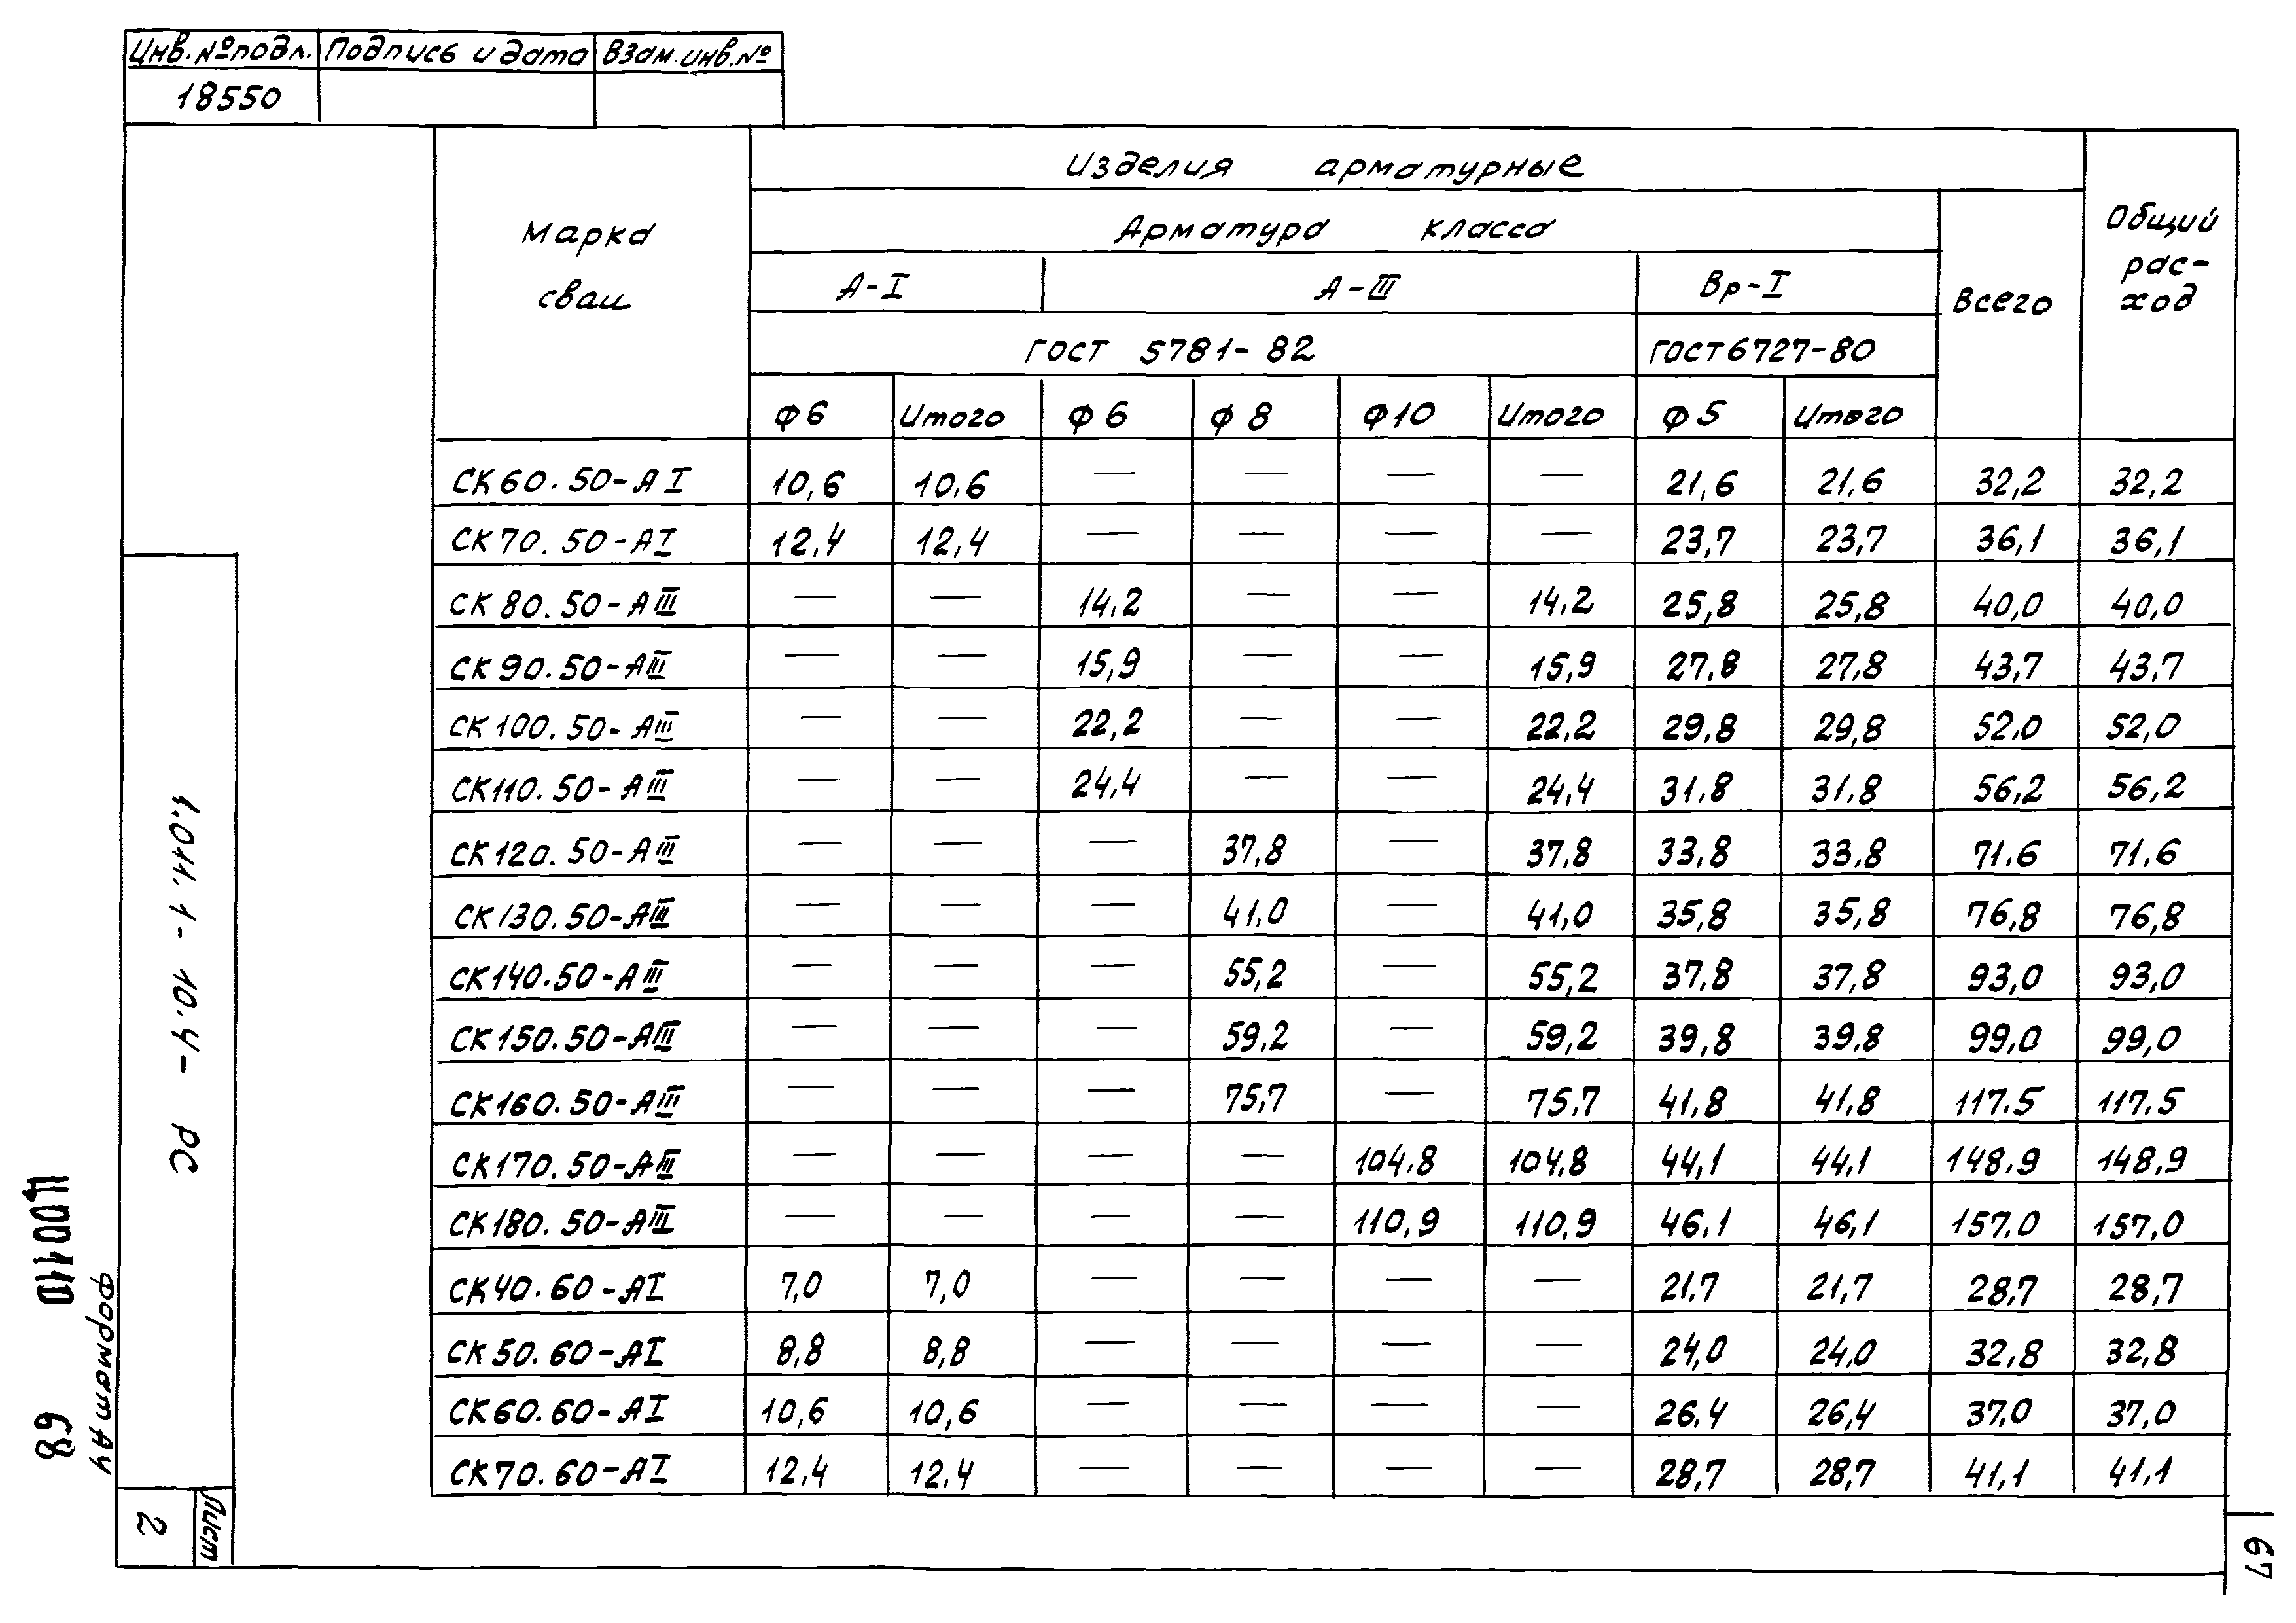 Инв.№подл. Подпись и дата Взам.инв.№
18550
Марка сваи
Изделия арматурные
Арматура класса
Всего
Общий рас-ход
А-I А-III Вр-I
ГОСТ 5781-82 ГОСТ 6727-80
Ф6 Итого Ф6 Ф8 Ф10 Итого Ф5 Итого
СК60.50-АI 10,6 10,6 — — — — 21,6 21,6 32,2 32,2
СК70.50-АI 12,4 12,4 — — — — 23,7 23,7 36,1 36,1
СК80.50-АIII — — 14,2 — — 14,2 25,8 25,8 40,0 40,0
СК90.50-АIII — — 15,9 — — 15,9 27,8 27,8 43,7 43,7
СК100.50-АIII — — 22,2 — — 22,2 29,8 29,8 52,0 52,0
СК110.50-АIII — — 24,4 — — 24,4 31,8 31,8 56,2 56,2
СК120.50-АIII — — — 37,8 — 37,8 33,8 33,8 71,6 71,6
СК130.50-АIII — — — 41,0 — 41,0 35,8 35,8 76,8 76,8
СК140.50-АIII — — — 55,2 — 55,2 37,8 37,8 93,0 93,0
СК150.50-АIII — — — 59,2 — 59,2 39,8 39,8 99,0 99,0
СК160.50-АIII — — — 75,7 — 75,7 41,8 41,8 117.5 117.5
СК170.50-АIII — — — — 104,8 104,8 44,1 44,1 148,9 148,9
СК180.50-АIII — — — — 110,9 110,9 46,1 46,1 157,0 157,0
СК40.60-АI 7,0 7,0 — — — — 21,7 21,7 28,7 28,7
СК50.60-АI 8,8 8,8 — — — — 24,0 24,0 32,8 32,8
СК60.60-АI 10,6 10,6 — — — — 26,4 26,4 37,0 37,0
СК70.60-АI 12,4 12,4 — — — — 28,7 28,7 41,1 41,1
1.011.1-10.4- РС
Лист
2
Ц00110 68
Формат А4
67